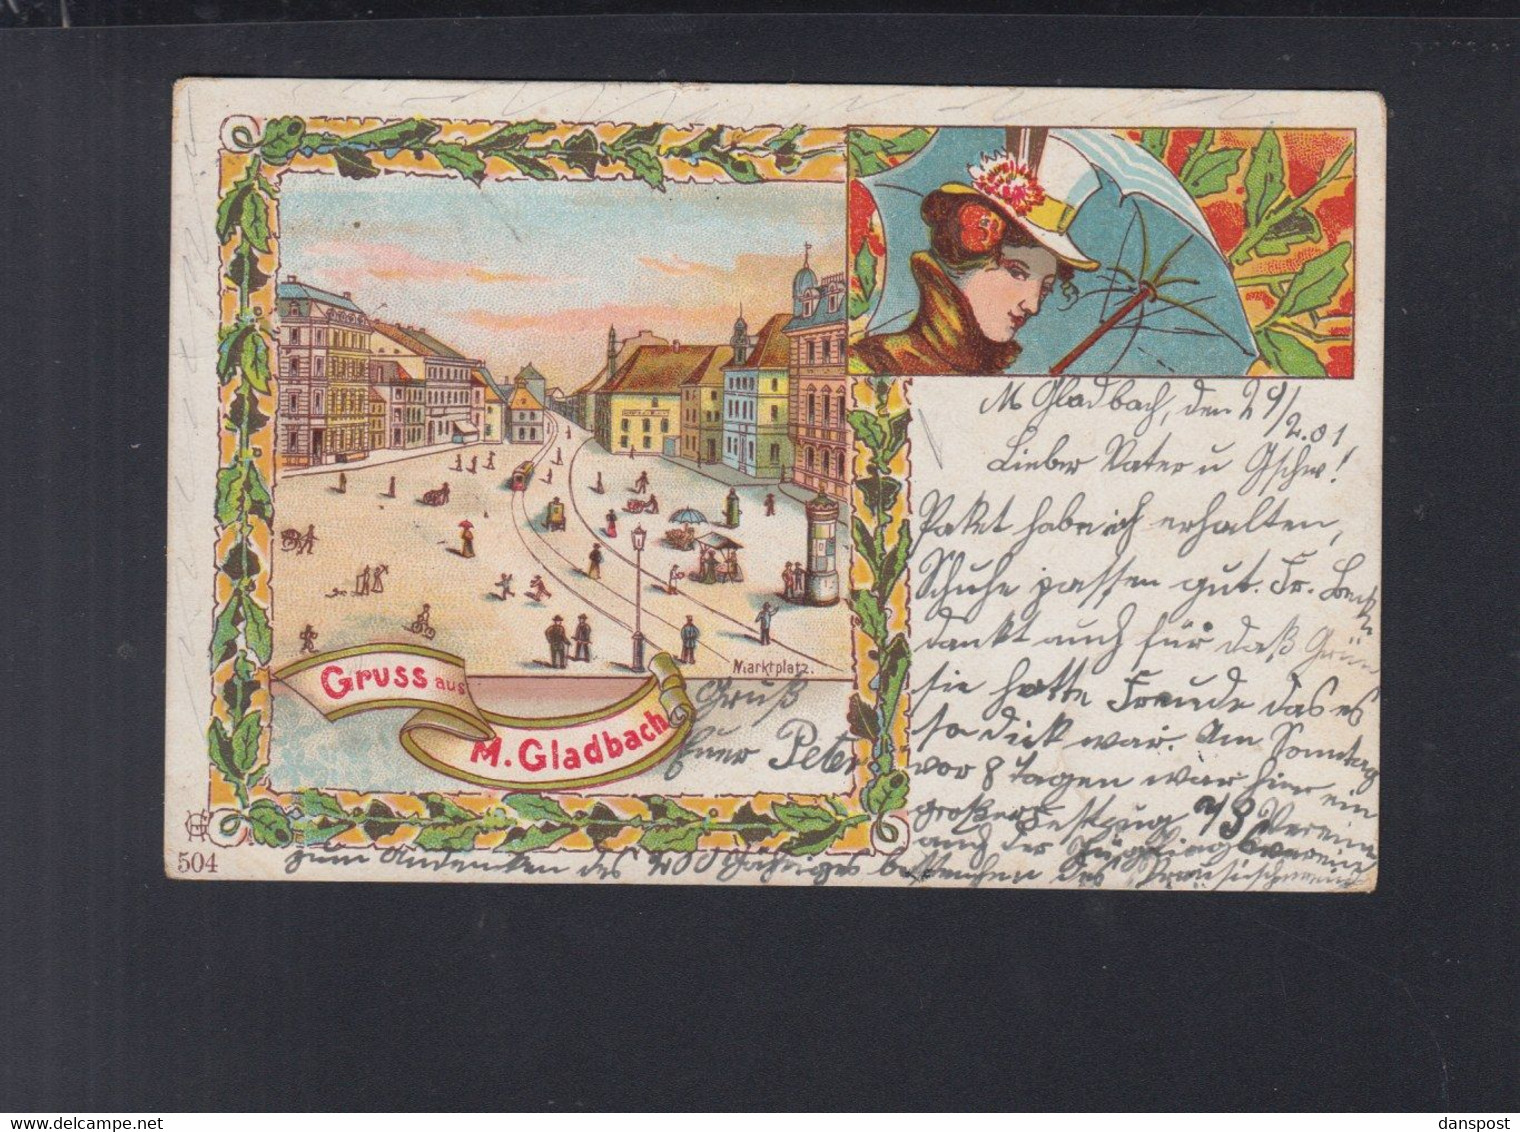 M Gladbach, den 29/2.01
Lieber Vater u Gschw!
Paket habe ich erhalten,
Schuhe passen gut. Fr. Beck
dankt auch für daß Grün
sie hatte Freude das es
so dick war. Am Sonntag
vor 8 Tagen war hier ein
großer Festzug Vereine
auch der Jünglingsverein
zum Andenken des 200 Jähriges bestehen des
Marktplatz.
Gruss aus
M. Gladbach
Gruß
Euer Peter
504
danspost